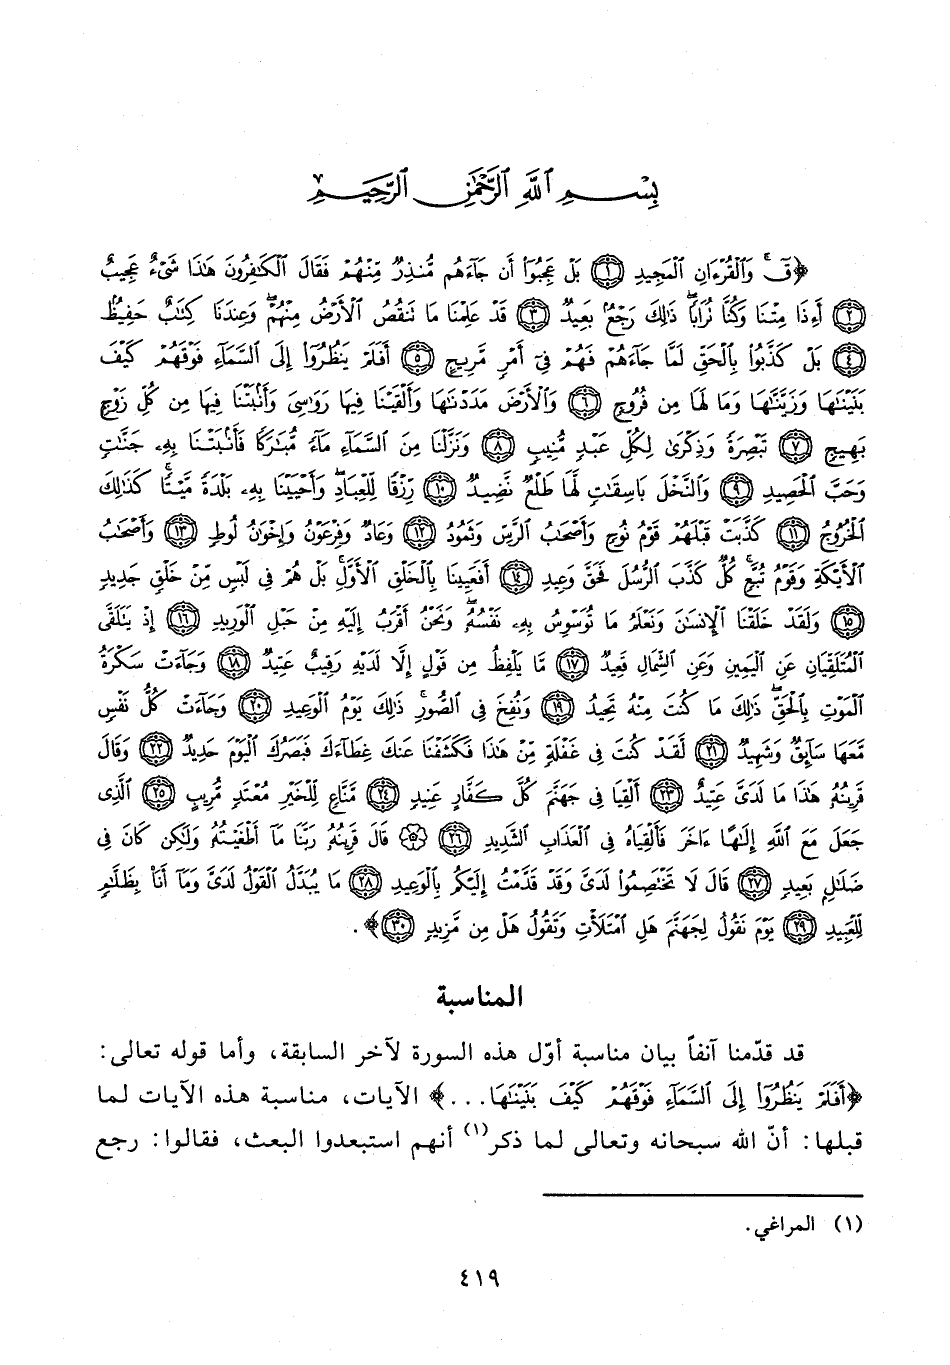 بِسْمِ ٱللَّهِ ٱلرَّحْمَٰنِ ٱلرَّحِيمِ
﴿قٓۚ وَٱلْقُرْءَانِ ٱلْمَجِيدِ ﴿١﴾ بَلْ عَجِبُوٓا۟ أَن جَآءَهُم مُّنذِرٌ مِّنْهُمْ فَقَالَ ٱلْكَٰفِرُونَ هَٰذَا شَىْءٌ عَجِيبٌ
﴿٢﴾ أَءِذَا مِتْنَا وَكُنَّا تُرَابًاۖ ذَٰلِكَ رَجْعٌۢ بَعِيدٌ ﴿٣﴾ قَدْ عَلِمْنَا مَا تَنقُصُ ٱلْأَرْضُ مِنْهُمْۖ وَعِندَنَا كِتَٰبٌ حَفِيظٌۢ
﴿٤﴾ بَلْ كَذَّبُوا۟ بِٱلْحَقِّ لَمَّا جَآءَهُمْ فَهُمْ فِىٓ أَمْرٍ مَّرِيجٍ ﴿٥﴾ أَفَلَمْ يَنظُرُوٓا۟ إِلَى ٱلسَّمَآءِ فَوْقَهُمْ كَيْفَ
بَنَيْنَٰهَا وَزَيَّنَّٰهَا وَمَا لَهَا مِن فُرُوجٍ ﴿٦﴾ وَٱلْأَرْضَ مَدَدْنَٰهَا وَأَلْقَيْنَا فِيهَا رَوَٰسِىَ وَأَنۢبَتْنَا فِيهَا مِن كُلِّ زَوْجٍۭ
بَهِيجٍ ﴿٧﴾ تَبْصِرَةً وَذِكْرَىٰ لِكُلِّ عَبْدٍ مُّنِيبٍ ﴿٨﴾ وَنَزَّلْنَا مِنَ ٱلسَّمَآءِ مَآءً مُّبَٰرَكًا فَأَنۢبَتْنَا بِهِۦ جَنَّٰتٍ
وَحَبَّ ٱلْحَصِيدِ ﴿٩﴾ وَٱلنَّخْلَ بَاسِقَٰتٍ لَّهَا طَلْعٌ نَّضِيدٌ ﴿١٠﴾ رِّزْقًا لِّلْعِبَادِۖ وَأَحْيَيْنَا بِهِۦ بَلْدَةً مَّيْتًاۚ كَذَٰلِكَ
ٱلْخُرُوجُ ﴿١١﴾ كَذَّبَتْ قَبْلَهُمْ قَوْمُ نُوحٍ وَأَصْحَٰبُ ٱلرَّسِّ وَثَمُودُ ﴿١٢﴾ وَعَادٌ وَفِرْعَوْنُ وَإِخْوَٰنُ لُوطٍ ﴿١٣﴾ وَأَصْحَٰبُ
ٱلْأَيْكَةِ وَقَوْمُ تُبَّعٍۚ كُلٌّ كَذَّبَ ٱلرُّسُلَ فَحَقَّ وَعِيدِ ﴿١٤﴾ أَفَعَيِينَا بِٱلْخَلْقِ ٱلْأَوَّلِۚ بَلْ هُمْ فِى لَبْسٍ مِّنْ خَلْقٍ جَدِيدٍ
﴿١٥﴾ وَلَقَدْ خَلَقْنَا ٱلْإِنسَٰنَ وَنَعْلَمُ مَا تُوَسْوِسُ بِهِۦ نَفْسُهُۥۖ وَنَحْنُ أَقْرَبُ إِلَيْهِ مِنْ حَبْلِ ٱلْوَرِيدِ ﴿١٦﴾ إِذْ يَتَلَقَّى
ٱلْمُتَلَقِّيَانِ عَنِ ٱلْيَمِينِ وَعَنِ ٱلشِّمَالِ قَعِيدٌ ﴿١٧﴾ مَّا يَلْفِظُ مِن قَوْلٍ إِلَّا لَدَيْهِ رَقِيبٌ عَتِيدٌ ﴿١٨﴾ وَجَآءَتْ سَكْرَةُ
ٱلْمَوْتِ بِٱلْحَقِّۖ ذَٰلِكَ مَا كُنتَ مِنْهُ تَحِيدُ ﴿١٩﴾ وَنُفِخَ فِى ٱلصُّورِۚ ذَٰلِكَ يَوْمُ ٱلْوَعِيدِ ﴿٢٠﴾ وَجَآءَتْ كُلُّ نَفْسٍ
مَّعَهَا سَآئِقٌ وَشَهِيدٌ ﴿٢١﴾ لَّقَدْ كُنتَ فِى غَفْلَةٍ مِّنْ هَٰذَا فَكَشَفْنَا عَنكَ غِطَآءَكَ فَبَصَرُكَ ٱلْيَوْمَ حَدِيدٌ ﴿٢٢﴾ وَقَالَ
قَرِينُهُۥ هَٰذَا مَا لَدَىَّ عَتِيدٌ ﴿٢٣﴾ أَلْقِيَا فِى جَهَنَّمَ كُلَّ كَفَّارٍ عَنِيدٍ ﴿٢٤﴾ مَّنَّاعٍ لِّلْخَيْرِ مُعْتَدٍ مُّرِيبٍ ﴿٢٥﴾ ٱلَّذِى
جَعَلَ مَعَ ٱللَّهِ إِلَٰهًا ءَاخَرَ فَأَلْقِيَاهُ فِى ٱلْعَذَابِ ٱلشَّدِيدِ ﴿٢٦﴾ قَالَ قَرِينُهُۥ رَبَّنَا مَآ أَطْغَيْتُهُۥ وَلَٰكِن كَانَ فِى
ضَلَٰلٍۭ بَعِيدٍ ﴿٢٧﴾ قَالَ لَا تَخْتَصِمُوا۟ لَدَىَّ وَقَدْ قَدَّمْتُ إِلَيْكُم بِٱلْوَعِيدِ ﴿٢٨﴾ مَا يُبَدَّلُ ٱلْقَوْلُ لَدَىَّ وَمَآ أَنَا۠ بِظَلَّٰمٍ
لِّلْعَبِيدِ ﴿٢٩﴾ يَوْمَ نَقُولُ لِجَهَنَّمَ هَلِ ٱمْتَلَأْتِ وَتَقُولُ هَلْ مِن مَّزِيدٍ ﴿٣٠﴾﴾.
المناسبة
قد قدّمنا آنفاً بيان مناسبة أوّل هذه السورة لآخر السابقة، وأما قوله تعالى:
﴿أَفَلَمْ يَنظُرُوٓا۟ إِلَى ٱلسَّمَآءِ فَوْقَهُمْ كَيْفَ بَنَيْنَٰهَا...﴾ الآيات، مناسبة هذه الآيات لما
قبلها: أنّ الله سبحانه وتعالى لما ذكر(١) أنهم استبعدوا البعث، فقالوا: رجع
(١) المراغي.
٤١٩